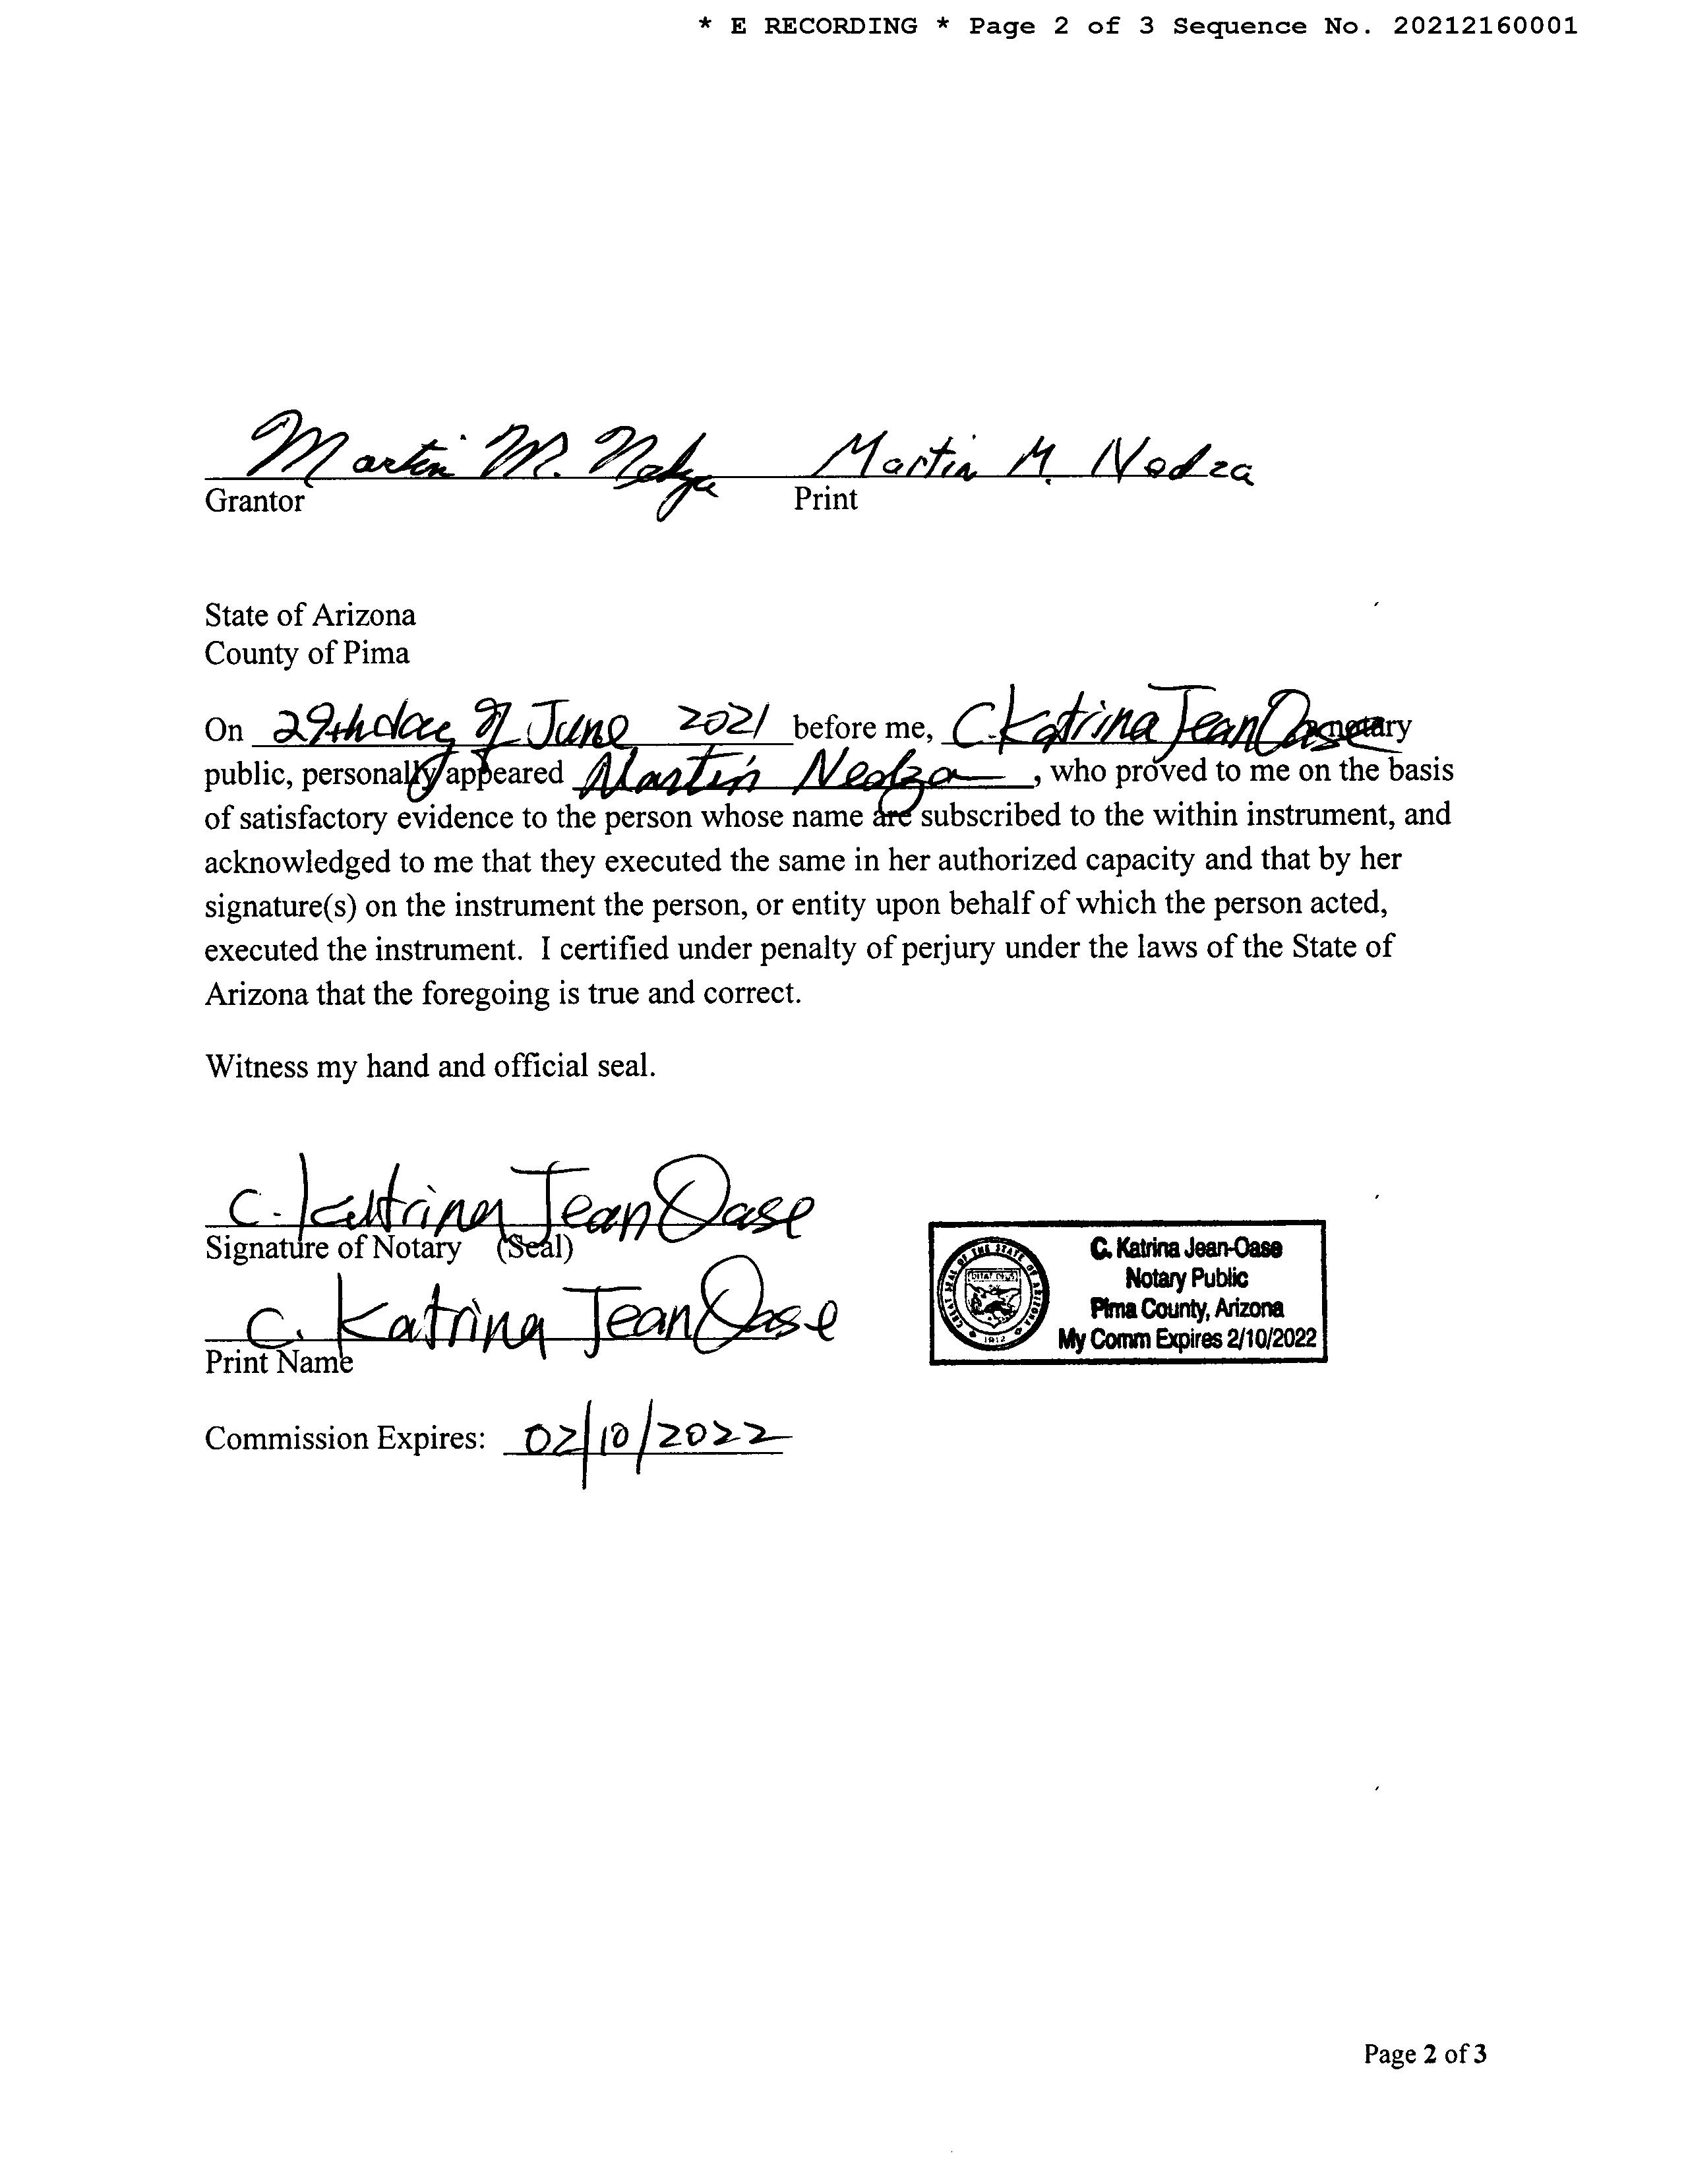 * E RECORDING * Page 2 of 3 Sequence No. 20212160001
Martin M. Nedza Martin M. Nedza
Grantor Print
State of Arizona
County of Pima
On 29th day of June 2021 before me, C. Katrina Jean Oase a notary
public, personally appeared Martin Nedza, who proved to me on the basis
of satisfactory evidence to the person whose name are subscribed to the within instrument, and
acknowledged to me that they executed the same in her authorized capacity and that by her
signature(s) on the instrument the person, or entity upon behalf of which the person acted,
executed the instrument. I certified under penalty of perjury under the laws of the State of
Arizona that the foregoing is true and correct.
Witness my hand and official seal.
C. Katrina Jean Oase
Signature of Notary (Seal)
C. Katrina Jean Oase
Print Name
GREAT SEAL OF THE STATE OF ARIZONA
1912
C. Katrina Jean-Oase
Notary Public
Pima County, Arizona
My Comm Expires 2/10/2022
Commission Expires: 02/10/2022
Page 2 of 3